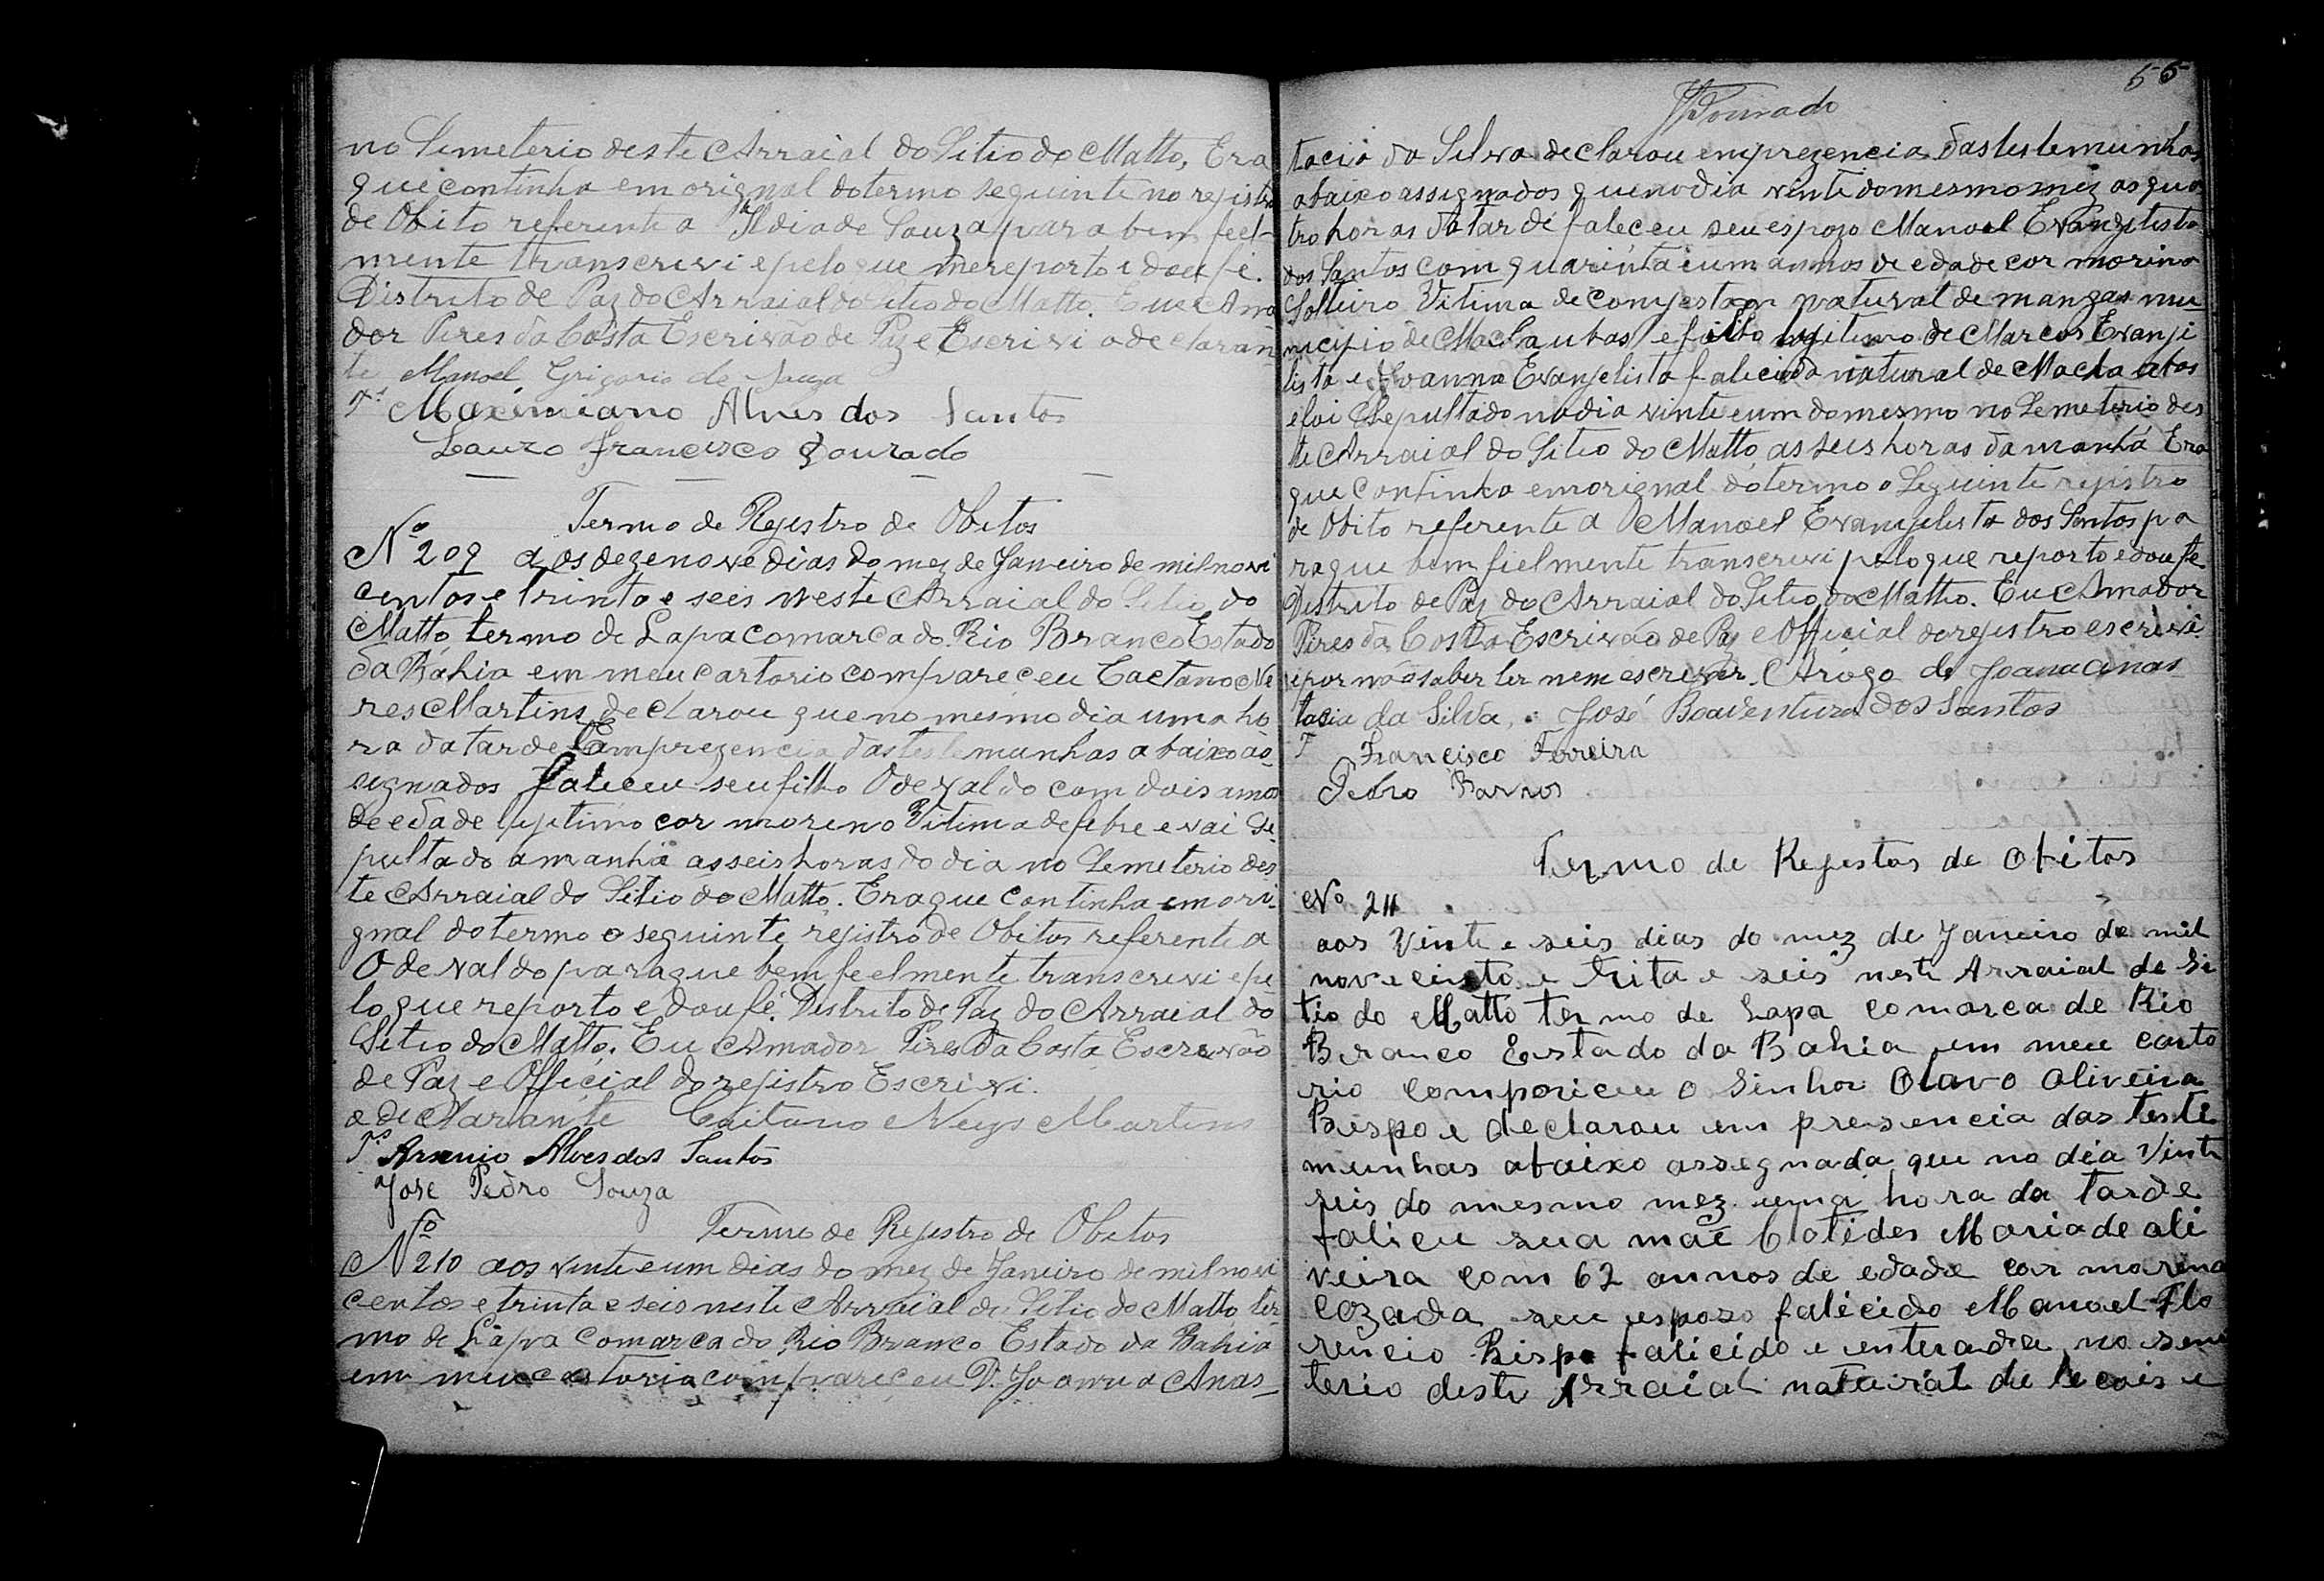 no Semeterio deste Arraial do Sitio do Matto, Era
que continha em orignal do termo seguinte no registro
de Obito referente a Ildia de Souza para bem feel-
mente transcrevi e pelo que me reporto e dou fé.
Distrito de Paz do Arraial do Sitio do Matto. Eu Ama
dor Pires da Costa Escrivão de Paz e Escrivi o declaran
te Manoel Grigorio de Souza
Tª Maximiano Alves dos Santos
Lauro Francisco Dourado
Termo de Rejistro de Obitos
Nº 209 aos dezenove dias do mez de Janeiro de mil novi
centos e trinta e seis neste Arraial do Sitio do
Matto, termo de Lapa comarca do Rio Branco Estado
da Bahia em meu cartorio compareceu Caetano Ne
res Martins declarou que no mesmo dia uma ho
ra da tarde Em prezencia das testemunhas abaixo as-
signados faleceu seu filho Odevaldo com dois annos
de edade lejitimo cor moreno Vitima de febre e vai se
pultado amanhã as seis horas do dia no Semeterio des
te Arraial do Sitio do Matto. Era que continha em ori-
gnal do termo o seguinte rejistro de Obitos referente a
Odevaldo para que bem feelmente transcrevi e pe
lo que reporto e dou fé. Distrito de Paz do Arraial do
Sitio do Matto. Eu Amador Pires da Costa Escrivão
de Paz e Official do rejistro Escrivi.
o declarante Caitano Neys Martins
Tª Arsenio Alves dos Santos
José Pedro Souza
Termo de Rejistro de Obitos
Nº 210 aos vinte e um dias do mez de Janeiro de mil novi
centos e trinta e seis neste Arraial do Sitio do Matto, ter-
mo de Lapa comarca do Rio Branco Estado da Bahia
em meu cartorio compareceu D. Joanna Anas-
55
Dourado
tacia da Silva declarou em prezencia das testemunhas
abaixo assignados que no dia vinte do mesmo mez as qua
tro horas da tarde faleceu seu espozo Manoel Evangelista
dos Santos com quarinta e um annos de edade cor morino
Solteiro Vitima de conjestam natural de mangas mu-
nicipio de Machaubas e filho lejitimo de Marcos Evanji
lista e Joanna Evanjelista falecida natural de Machaubas
e foi Sepultado no dia vinte e um do mesmo no Semeterio des
te Arraial do Sitio do Matto as seis horas da manhã Era
que continha em orignal do termo o Seguinte rejistro
de Obito referente a Manoel Evanjelista dos Santos pa
ra que bem fielmente transcrevi pelo que reporto e dou fé
Distrito de Paz do Arraial do Sitio do Matto. Eu Amador
Pires da Costa Escrivão de Paz e Official do rejistro escrivi
e por não saber ler nem escrever. Arogo de Joana anas
tacia da Silva, José Boaventura dos Santos
T Francisco Ferreira
Pedro Barros
Termo de Rejistos de Obitos
Nº 211
aos Vinte e seis dias do mez de Janeiro de mil
novecento e trita e seis neste Arraial de Si
tio do Matto termo de Lapa comarca de Rio
Branco Estado da Bahia em meu carto
rio compariceu o Sinhor Olavo Oliveira
Bispo e declarou em presencia das teste
munhas abaixo assegnada que no dia Vinte
seis do mesmo mez uma hora da tarde
falieu sua mãe Clotides Maria de oli
veira com 62 annos de edade cor morena
cazada seu esposo falécido Manoel Flo
rencio Bispo falicido e enterada no seme
terio deste Arraial natural de e